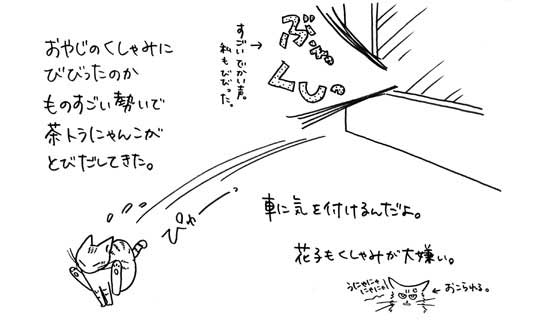 おやじのくしゃみに
びびったのか
ものすごい勢いで
茶トラにゃんこが
とびだしてきた。
すごいでかい声。
私もびびった。
ぶぇっ
くしっ
ぴゃーっ
車に気を付けるんだよ。
花子もくしゃみが大嫌い。
うにゃにゃ
にゃにゃ!
おこられる。